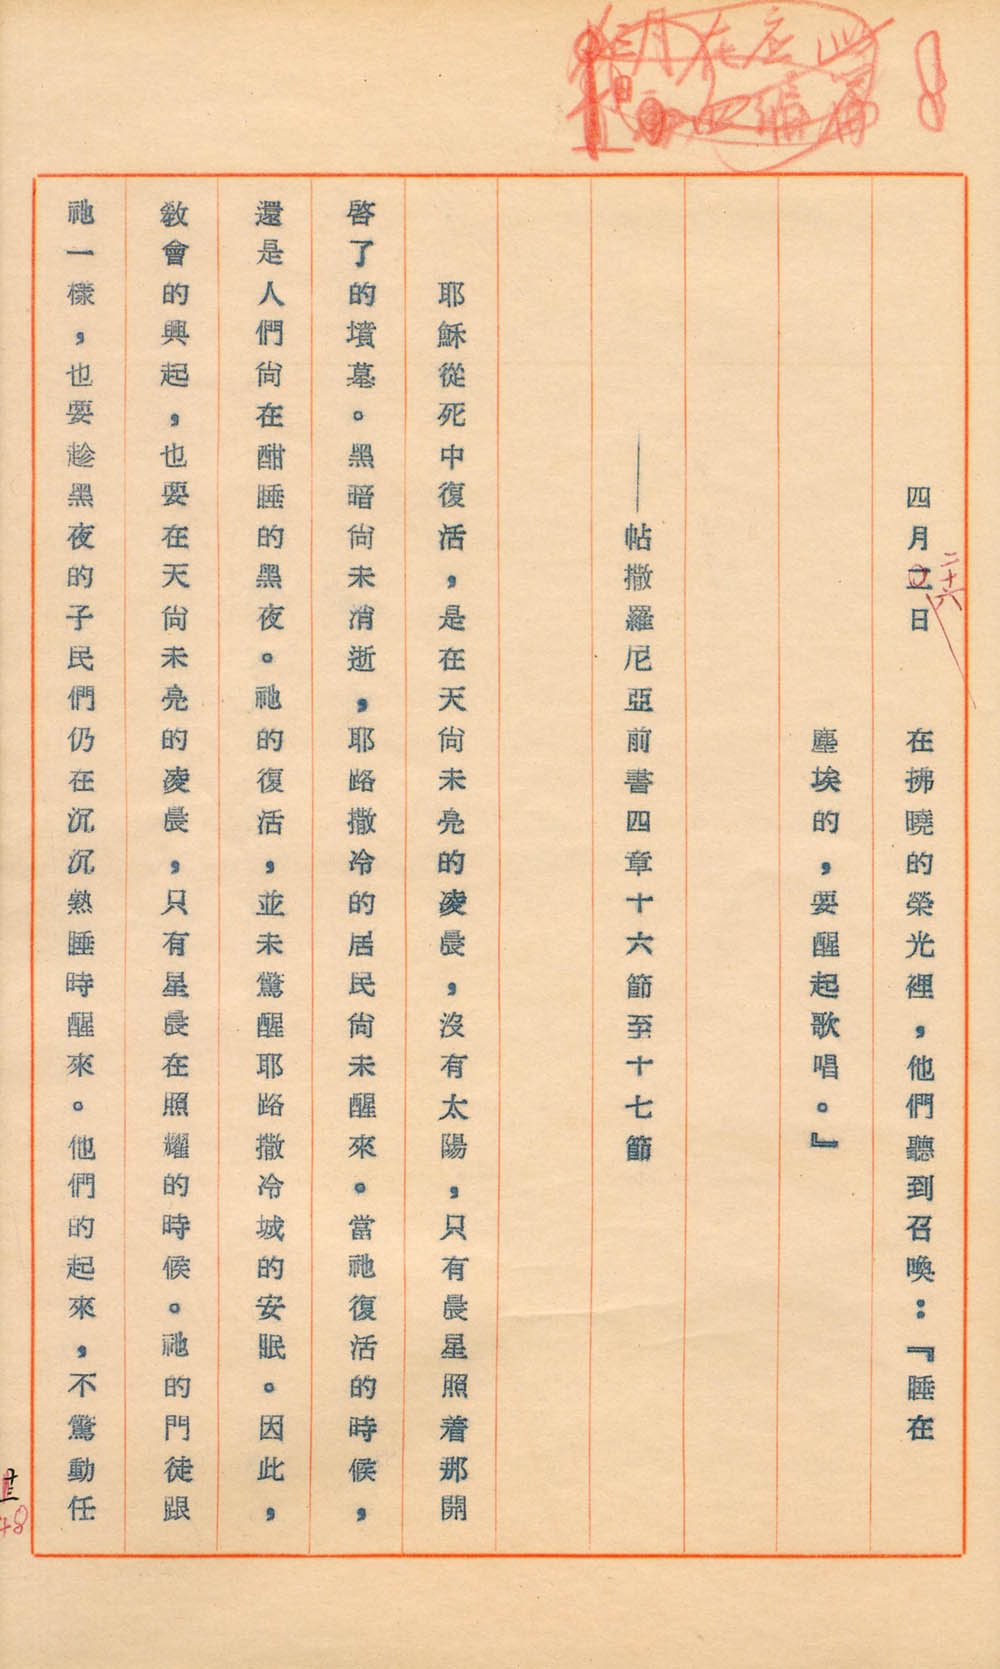 四月 日
二十六
在拂曉的榮光裡，他們聽到召喚：『睡在
塵埃的，要醒起歌唱。』
——帖撒羅尼亞前書四章十六節至十七節
耶穌從死中復活，是在天尙未亮的凌晨，沒有太陽，只有晨星照着那開
啓了的墳墓。黑暗尙未消逝，耶路撒冷的居民尙未醒來。當祂復活的時候，
還是人們尙在酣睡的黑夜。祂的復活，並未驚醒耶路撒冷城的安眠。因此，
敎會的興起，也要在天尙未亮的凌晨，只有星晨在照耀的時候。祂的門徒跟
祂一樣，也要趁黑夜的子民們仍在沉沉熟睡時醒來。他們的起來，不驚動任
48